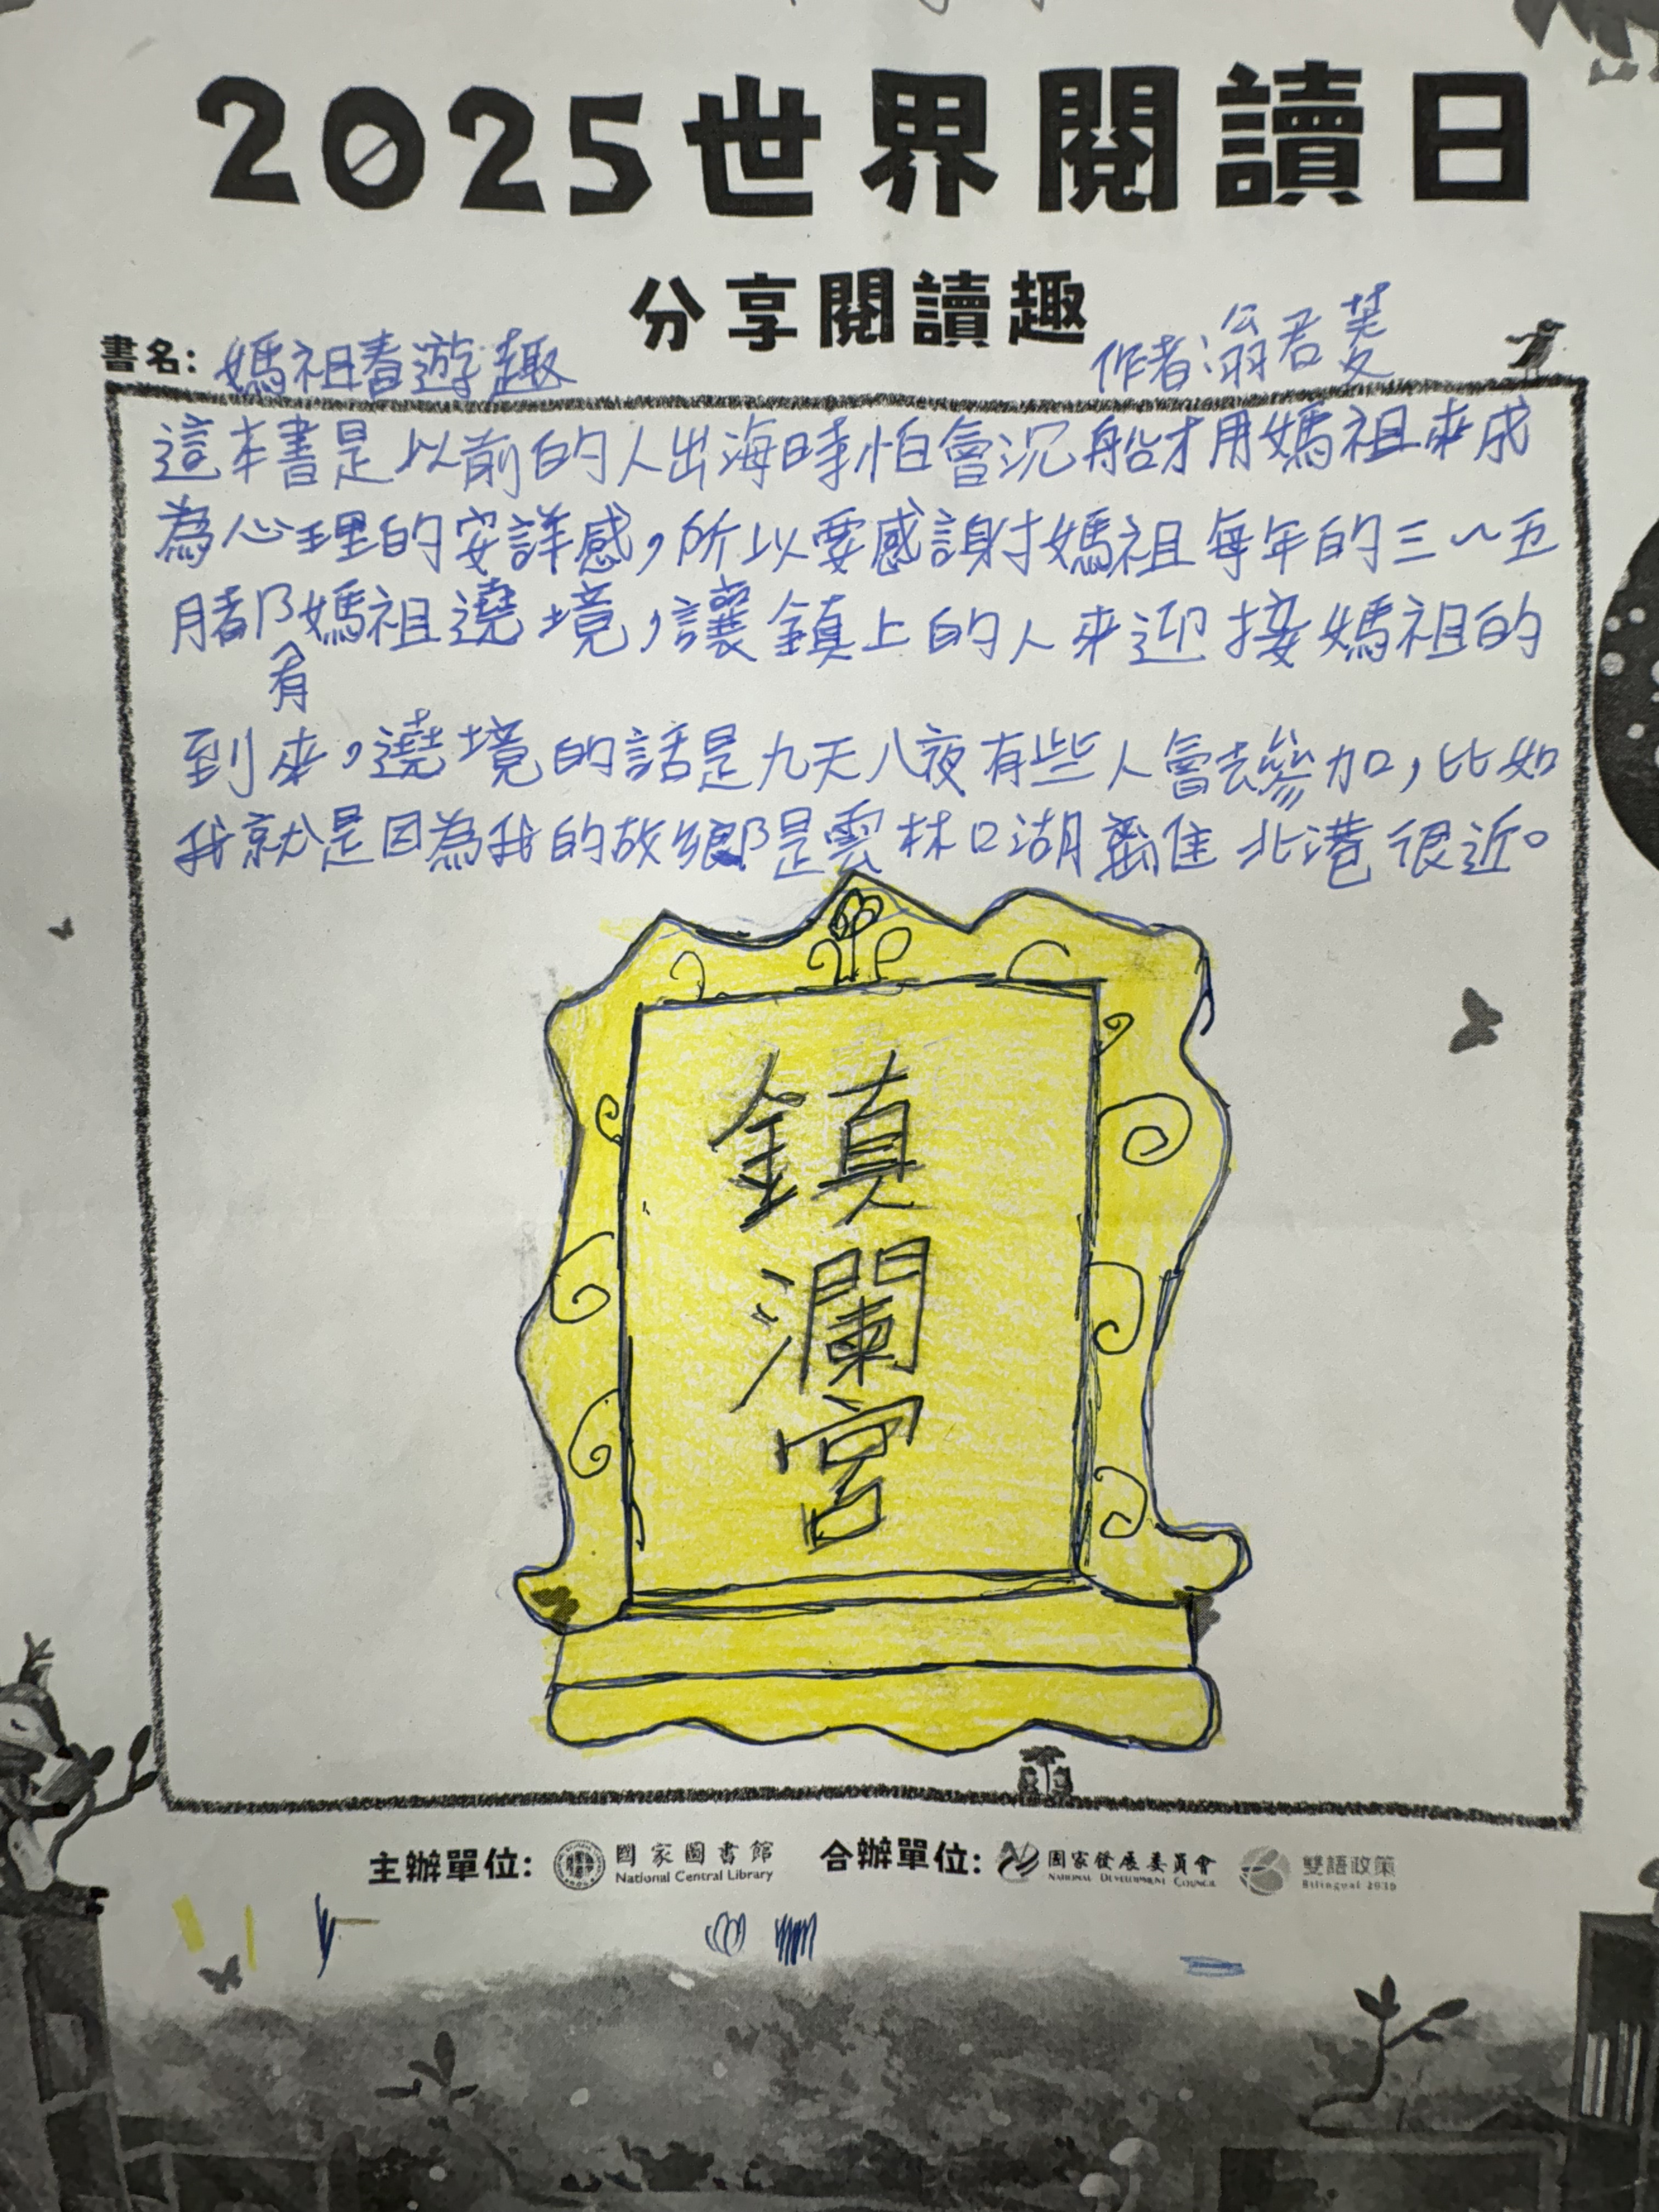 2025世界閱讀日
分享閱讀趣
書名：媽祖春遊趣
作者：翁君菱
這本書是以前的人出海時怕會沉船才用媽祖來成
為心理的安詳感，所以要感謝媽祖每年的三～五
月都有媽祖遶境，讓鎮上的人來迎接媽祖的
到來，遶境的話是九天八夜有些人會去參加，比如
我就是因為我的故鄉是雲林口湖離北港很近。
鎮
瀾
宮
主辦單位：國家圖書館 合辦單位：國家發展委員會 雙語政策
National Central Library NATIONAL DEVELOPMENT COUNCIL Bilingual 2030